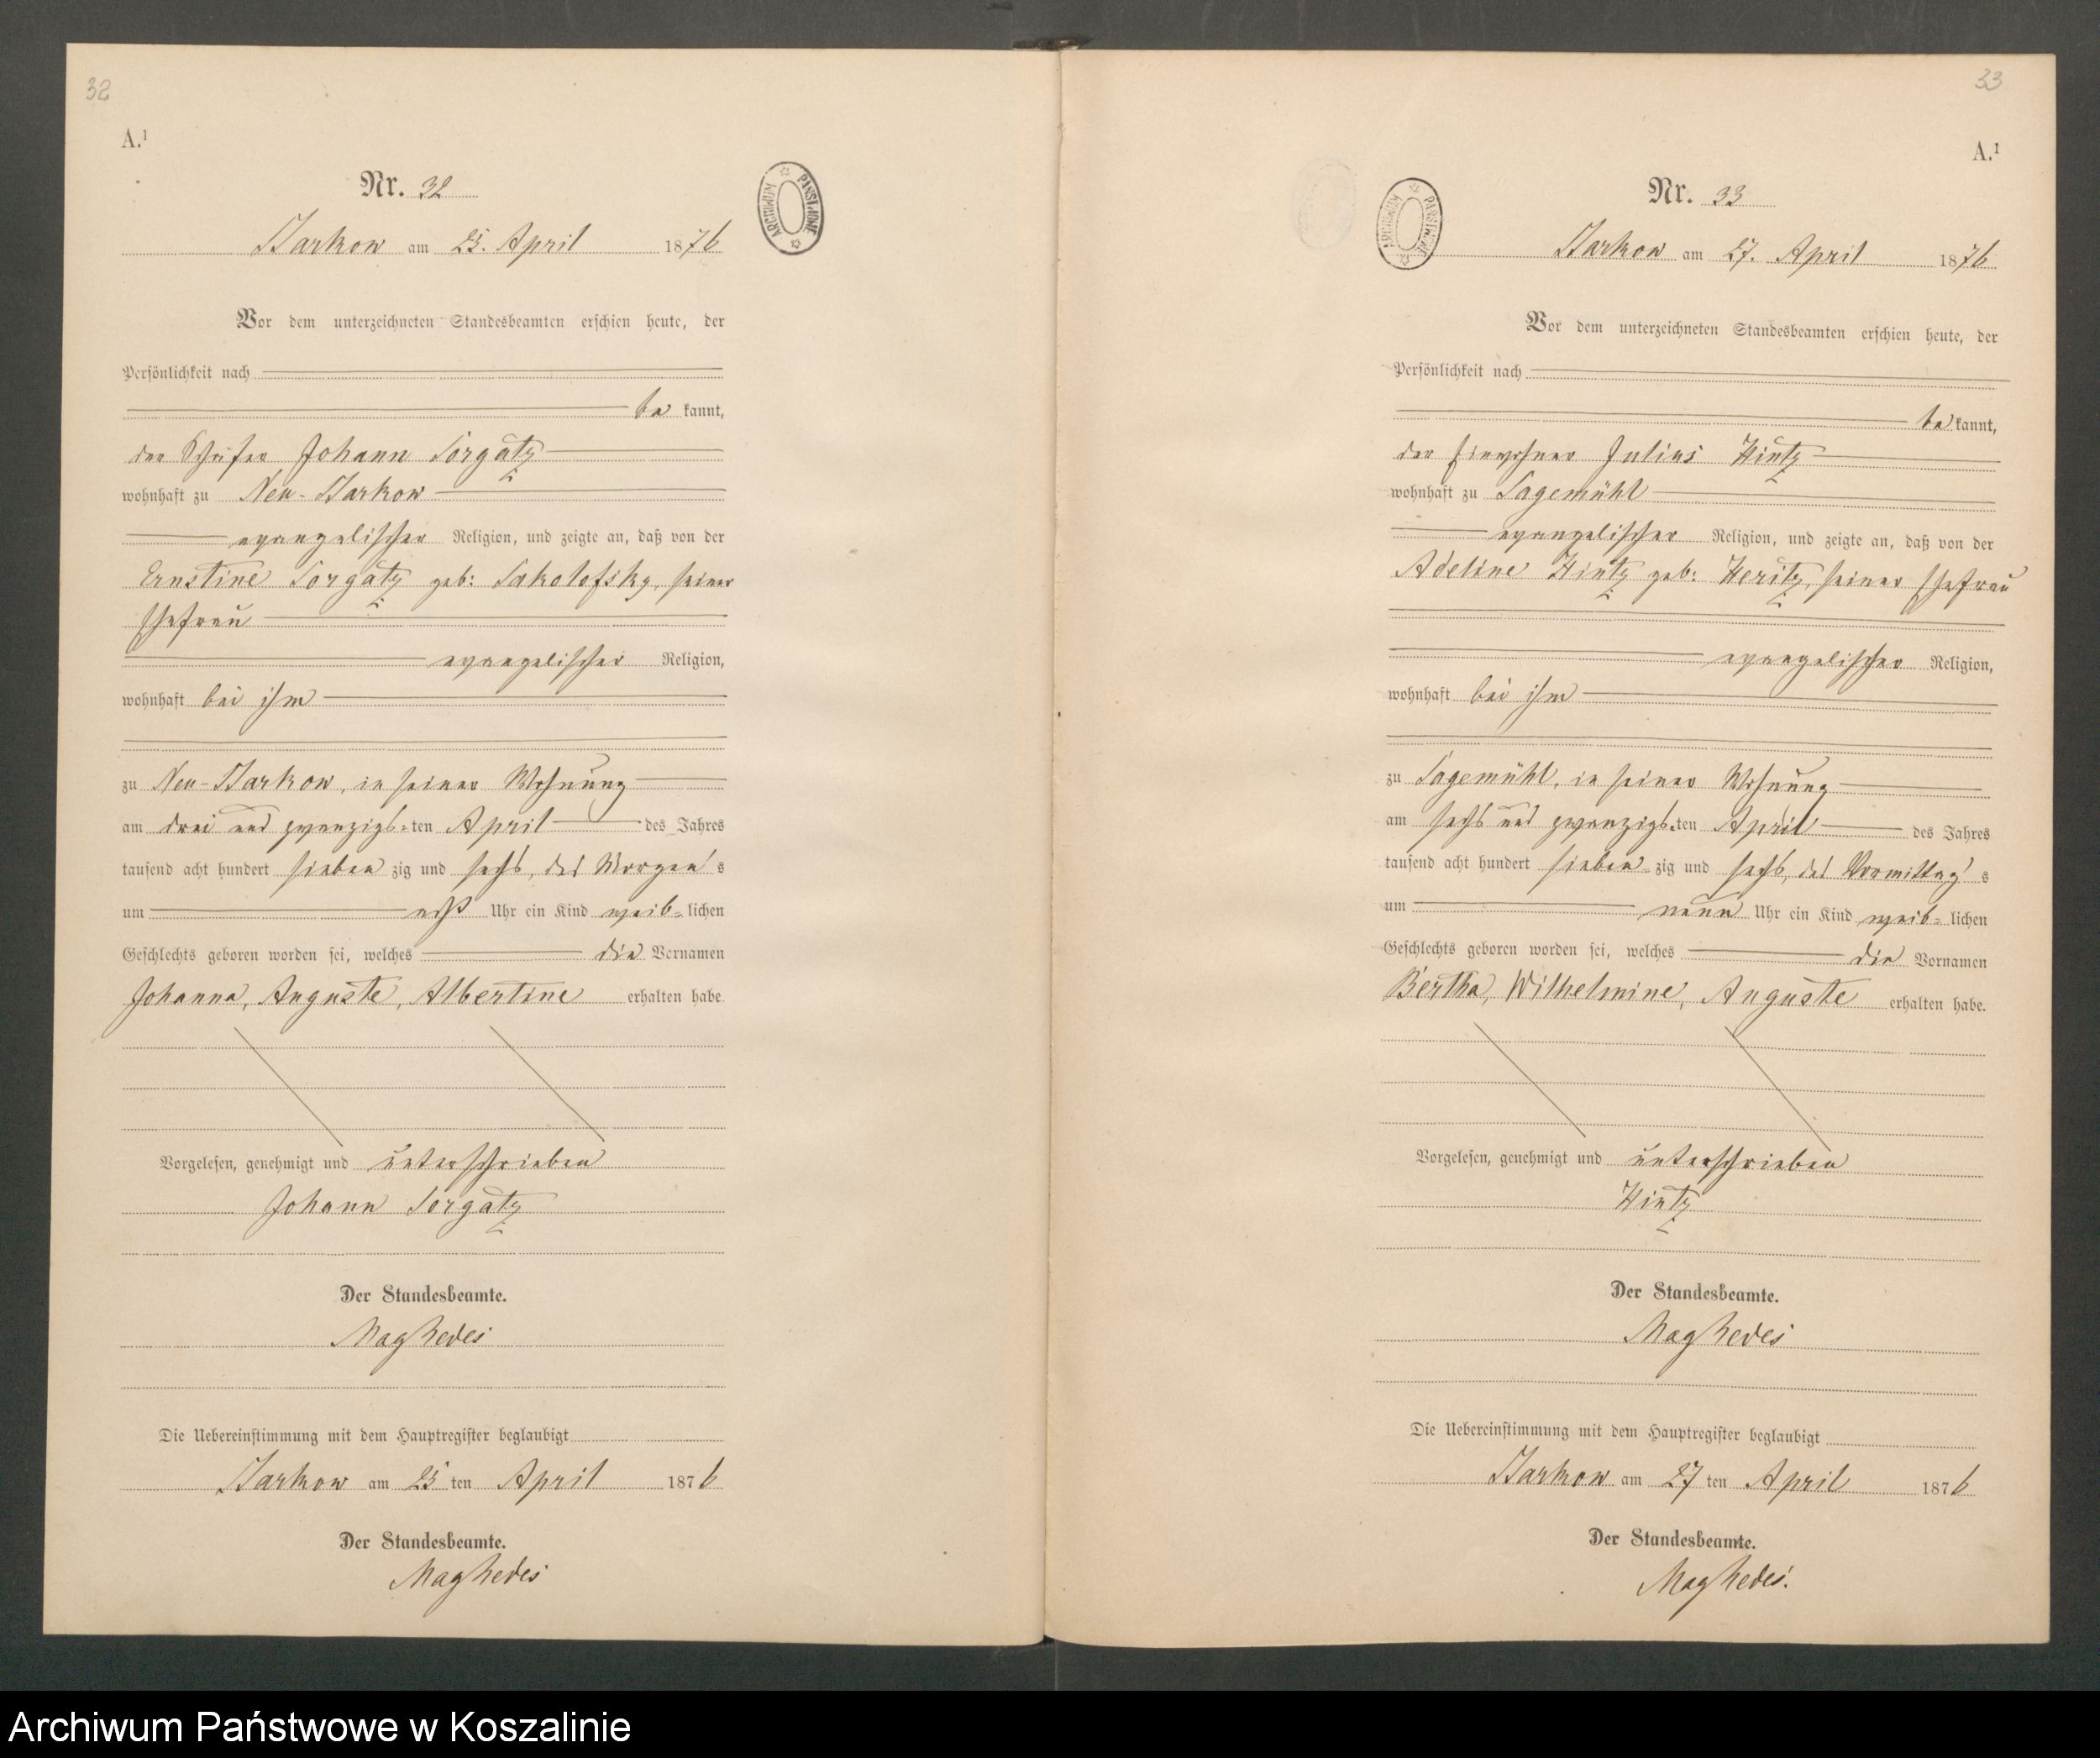 32
A.¹
Nr. 32
ARCHIWUM PAŃSTWOWE
Barkow am 25. April 1876
Vor dem unterzeichneten Standesbeamten erschien heute, der
Persönlichkeit nach
be kannt,
der Schäfer Johann Sorgatz
wohnhaft zu Neu-Barkow
evangelischer Religion, und zeigte an, daß von der
Ernstine Sorgatz geb: Sakolofsky, seiner
Ehefrau
evangelischer Religion,
wohnhaft bei ihm
zu Neu-Barkow, in seiner Wohnung
am drei und zwanzigs-ten April des Jahres
tausend acht hundert sieben zig und sechs, des Morgens
um acht Uhr ein Kind weib-lichen
Geschlechts geboren worden sei, welches die Vornamen
Johanna, Auguste, Albertine erhalten habe.
Vorgelesen, genehmigt und unterschrieben
Johann Sorgatz
Der Standesbeamte.
Die Uebereinstimmung mit dem Hauptregister beglaubigt
Barkow am 25 ten April 1876
Der Standesbeamte.
33
A.¹
Nr. 33
ARCHIWUM PAŃSTWOWE
Barkow am 27. April 1876
Vor dem unterzeichneten Standesbeamten erschien heute, der
Persönlichkeit nach
be kannt,
der Einwohner Julius Hintz
wohnhaft zu Sagemühl
evangelischer Religion, und zeigte an, daß von der
Adeline Hintz geb: Heritz, seiner Ehefrau
evangelischer Religion,
wohnhaft bei ihm
zu Sagemühl, in seiner Wohnung
am sechs und zwanzigs-ten April des Jahres
tausend acht hundert sieben-zig und sechs, des Vormittags
um neun Uhr ein Kind weib-lichen
Geschlechts geboren worden sei, welches die Vornamen
Bertha, Wilhelmine, Auguste erhalten habe.
Vorgelesen, genehmigt und unterschrieben
Hintz
Der Standesbeamte.
Die Uebereinstimmung mit dem Hauptregister beglaubigt
Barkow am 27 ten April 1876
Der Standesbeamte.
Archiwum Państwowe w Koszalinie